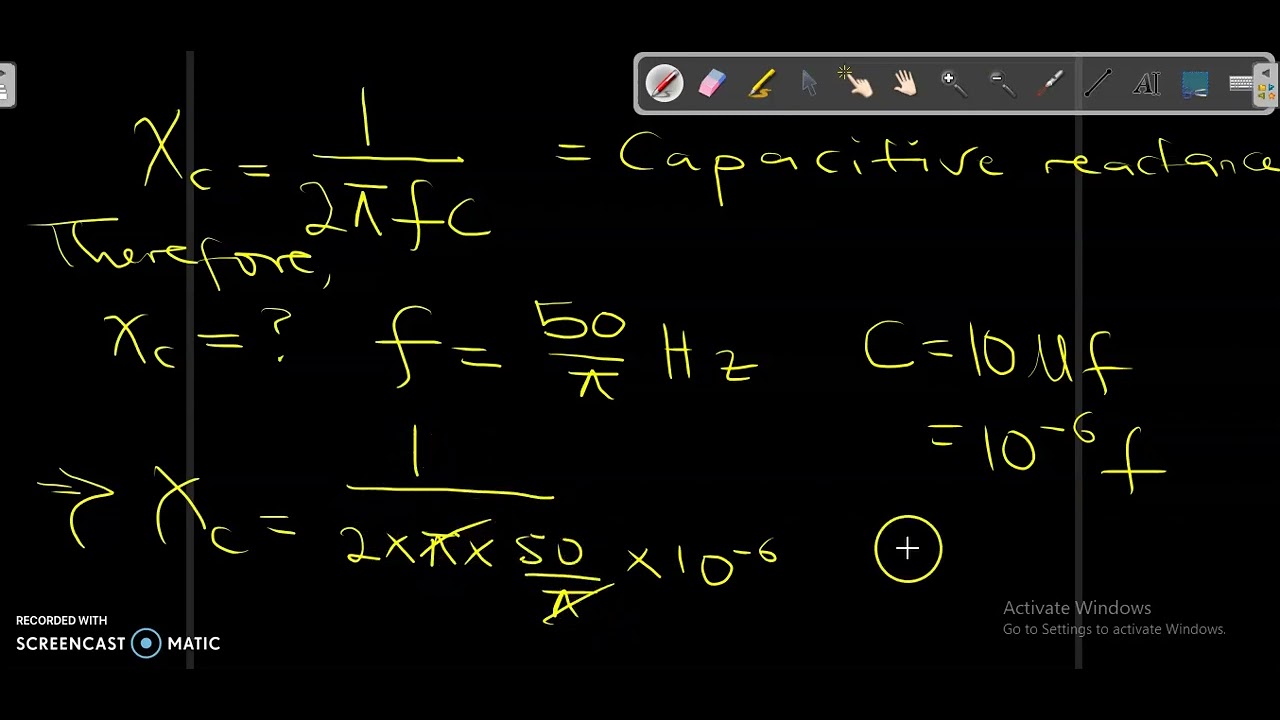 Xc = 1/2πfC = Capacitive reactance
Therefore,
Xc = ? f = 50/π Hz C = 10 μf
= 10⁻⁶ f
⇒ Xc = 1/2×π×50/π×10⁻⁶
AI
RECORDED WITH
SCREENCAST MATIC
Activate Windows
Go to Settings to activate Windows.